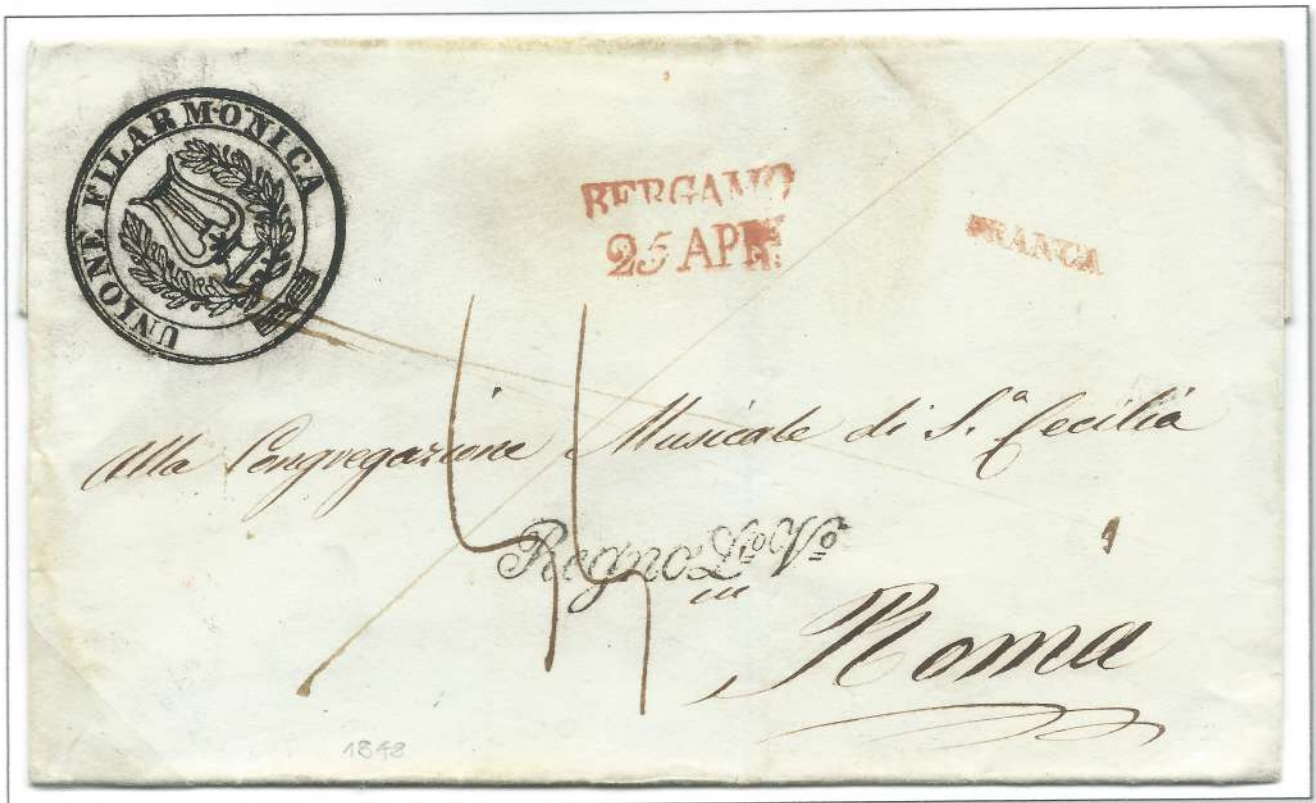 UNIONE FILARMONICA
BERGAMO
25 APR.
FRANCA
Alla Congregazione Musicale di S.ª Cecilia
Regno L.º V.º
in
Roma
1848